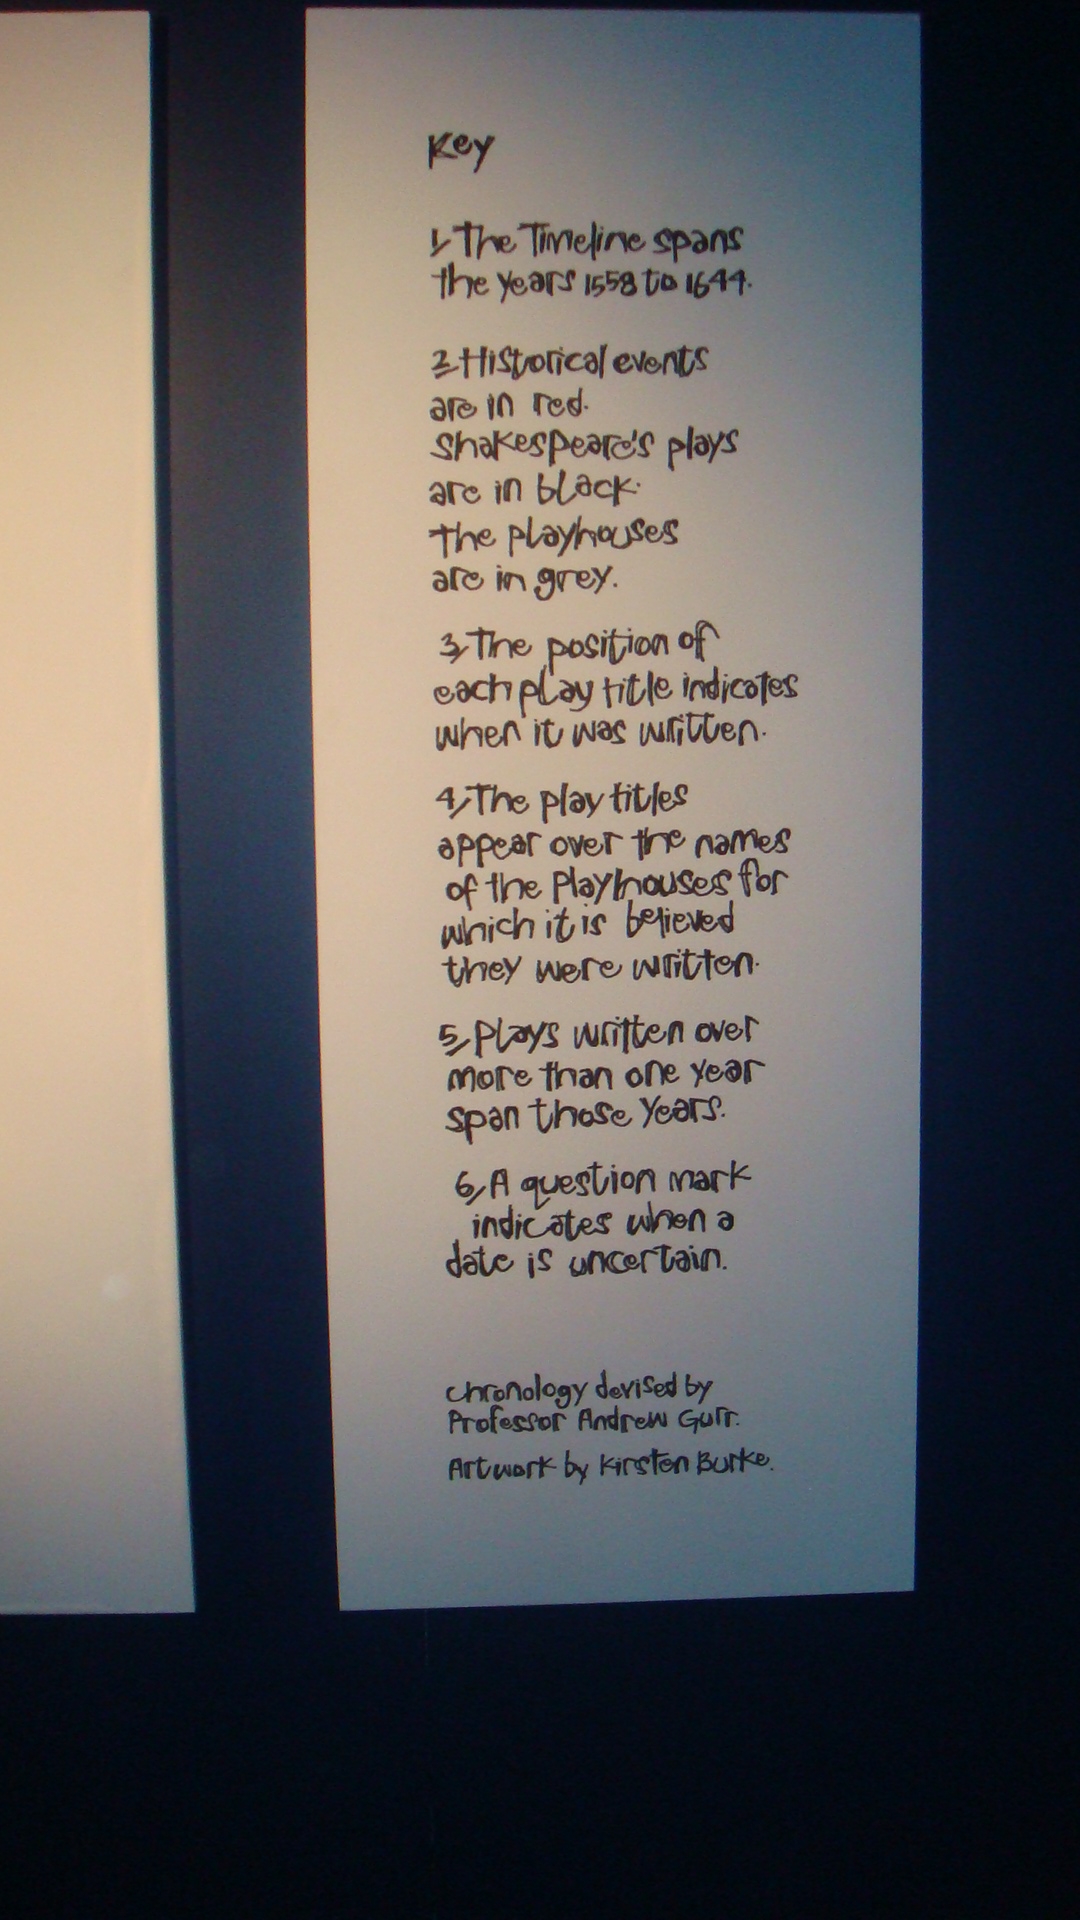 Key
1, The Timeline spans
the years 1558 to 1644.
2, Historical events
are in red.
Shakespeare's plays
are in black.
The playhouses
are in grey.
3, The position of
each play title indicates
when it was written.
4, The play titles
appear over the names
of the playhouses for
which it is believed
they were written.
5, Plays written over
more than one year
span those years.
6, A question mark
indicates when a
date is uncertain.
Chronology devised by
Professor Andrew Gurr.
Artwork by Kirsten Burke.